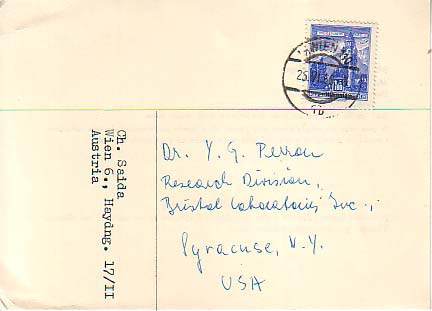 WIEN
Ch. Saida
Wien 6., Haydng. 17/II
Austria
Dr. Y. G. Perron
Research Division,
Bristol Laboratories Inc.,
Syracuse, N.Y.
USA